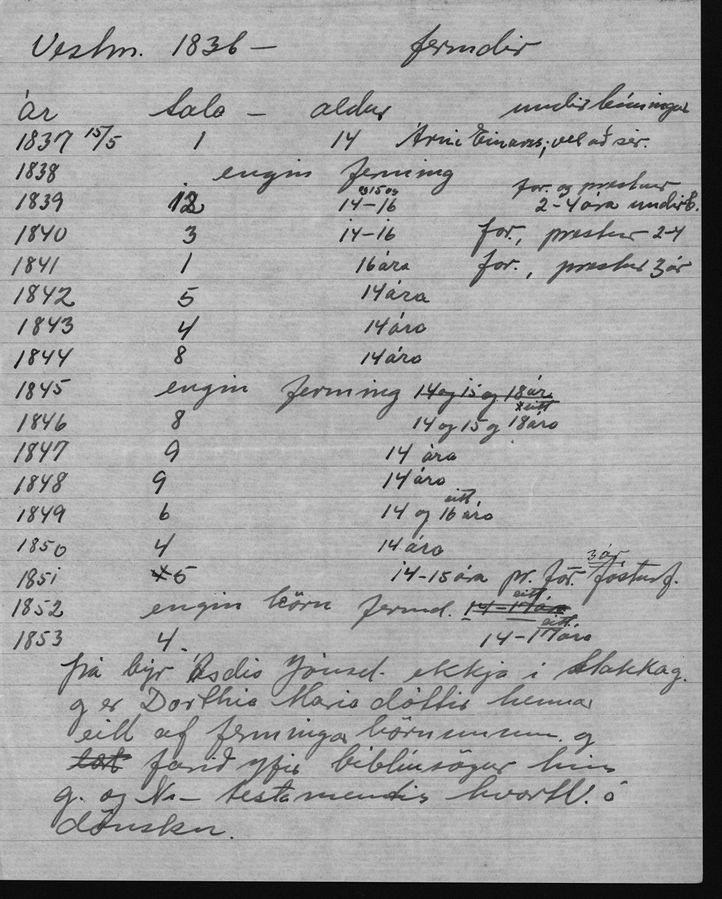 Vestm. 1836 — fermdir
ár tala — aldur undirbúningur
1837 15/5 1 14 Árni Einars, vel að sér.
1838 engin ferming
1839 12 14-16 og 15 og for. og prestur 2-4 ára undirb.
1840 3 14-16 for., prestur 2-4
1841 1 16 ára for., prestur 3 ár
1842 5 14 ára
1843 4 14 ára
1844 8 14 ára
1845 engin ferming 14 og 15 og 18 ára
1846 8 14 og 15 og eitt 18 ára
1847 9 14 ára
1848 9 14 ára
1849 6 14 og eitt 16 ára
1850 4 14 ára
1851 5 14-15 ára pr. for. 3 ár fósturf.
1852 engin börn fermd. 14-eitt 17 ára
1853 4. 14-eitt 17 ára
þá býr Ásdis Jónsd. ekkja i Stakkag.
g er Dorthia Maria dóttir hennar
eitt af fermingarbörnunum. g
farið yfir bibliusögur hins
g. og N- testamentis hvortv. á
dönsku.